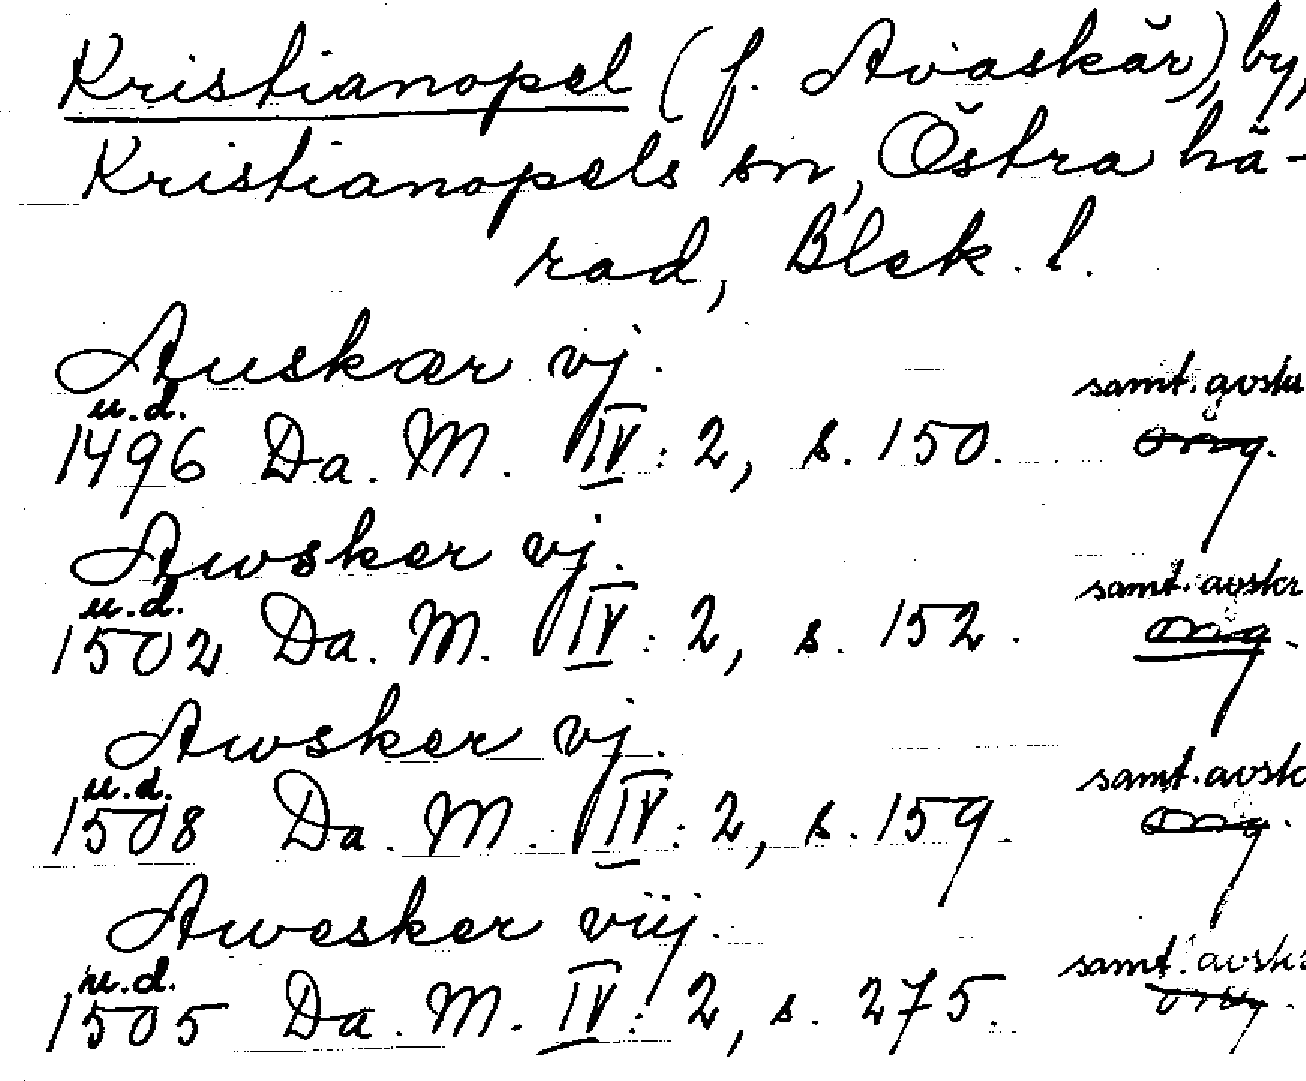 Kristianopel (f. Avaskär), by,
Kristianopels sn, Östra hä-
rad, Blek. l.
Auskær vj.
samt. avskr
u.d.
1496 Da. M. IV: 2, s. 150. orig.
Awsker vj.
samt. avskr
u.d.
1502 Da. M. IV: 2, s. 152. orig.
Awsker vj.
samt. avskr
u.d.
1508 Da. M. IV: 2, s. 159. orig.
Awesker viij.
samt. avskr
u.d.
1505 Da. M. IV: 2, s. 275. orig.